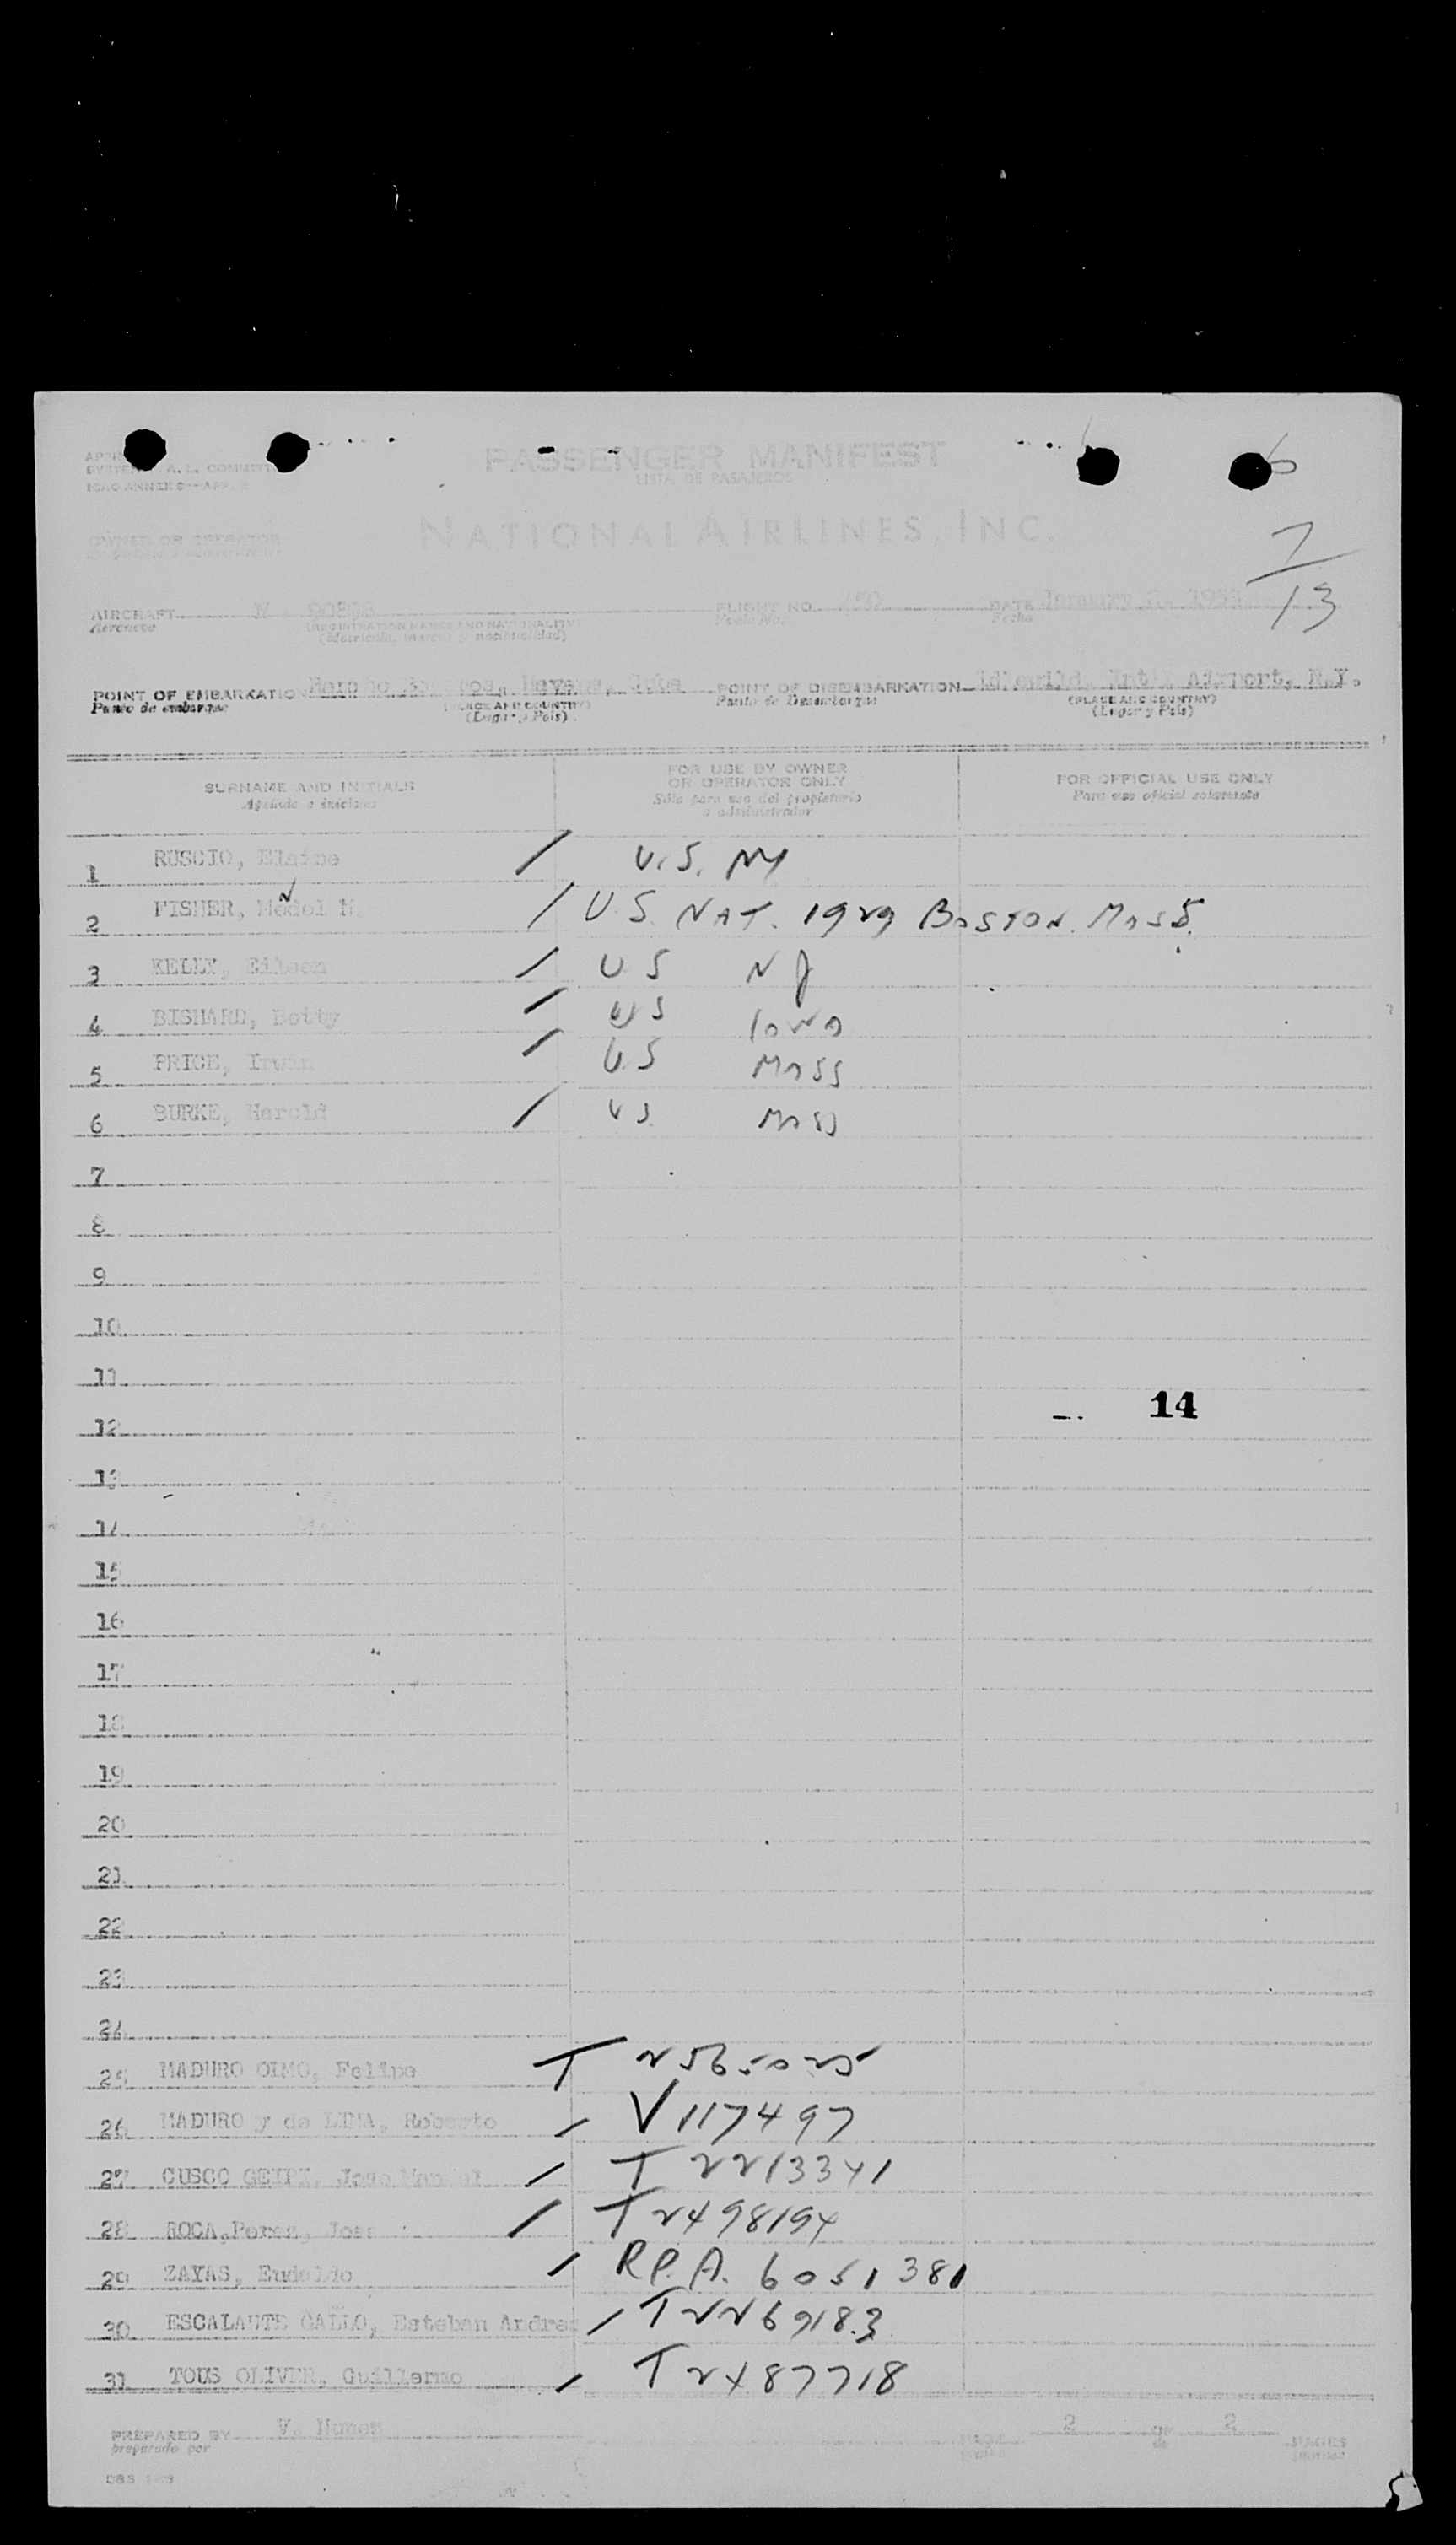 6
PASSENGER MANIFEST
LISTA DE PASAJEROS
ICAO ANNEX 9
NATIONAL AIRLINES, INC.
OWNER OR OPERATOR
7
13
AIRCRAFT N FLIGHT NO. DATE January
Aeronave (REGISTRATION MARKS AND NATIONALITY) Fecha
(Matricula, marcas y nacionalidad)
POINT OF EMBARKATION Havana, Cuba POINT OF DISEMBARKATION Idlewild, Int'l Airport, N.Y.
Punto de embarque (PLACE AND COUNTRY) Punto de Desembarque (PLACE AND COUNTRY)
(Lugar y Pais) (Lugar y Pais)
SURNAME AND INITIALS FOR USE BY OWNER OR OPERATOR ONLY FOR OFFICIAL USE ONLY
Apellido e iniciales Sólo para uso del propietario o administrador Para uso oficial solamente
1 RUSCIO, Elaine / U.S. NY
2 FISHER, / U.S. NAT. 1929 BOSTON. MASS.
3 KELLY, Eileen / U S N J
4 BISHARD, Betty / US IOWA
5 PRICE, / U.S MASS
6 BURKE, Harold / US. MASS
7
8
9
10
11
12 14
13
14
15
16
17
18
19
20
21
22
23
24
25 MADURO OLMO, Felipe T 2565025
26 MADURO y de LIMA, Roberto / V117497
27 CUSCO Jose Manuel / T 2213341
28 ROCA, Jose / T2498194
29 ZAYAS, / R.P.A. 6051381
30 ESCALANTE GALLO, Esteban Andres / T2269183
31 TOUS OLIVER, Guillermo / T2487718
PREPARED BY V. PAGE 2 OF 2 PAGES
preparado por